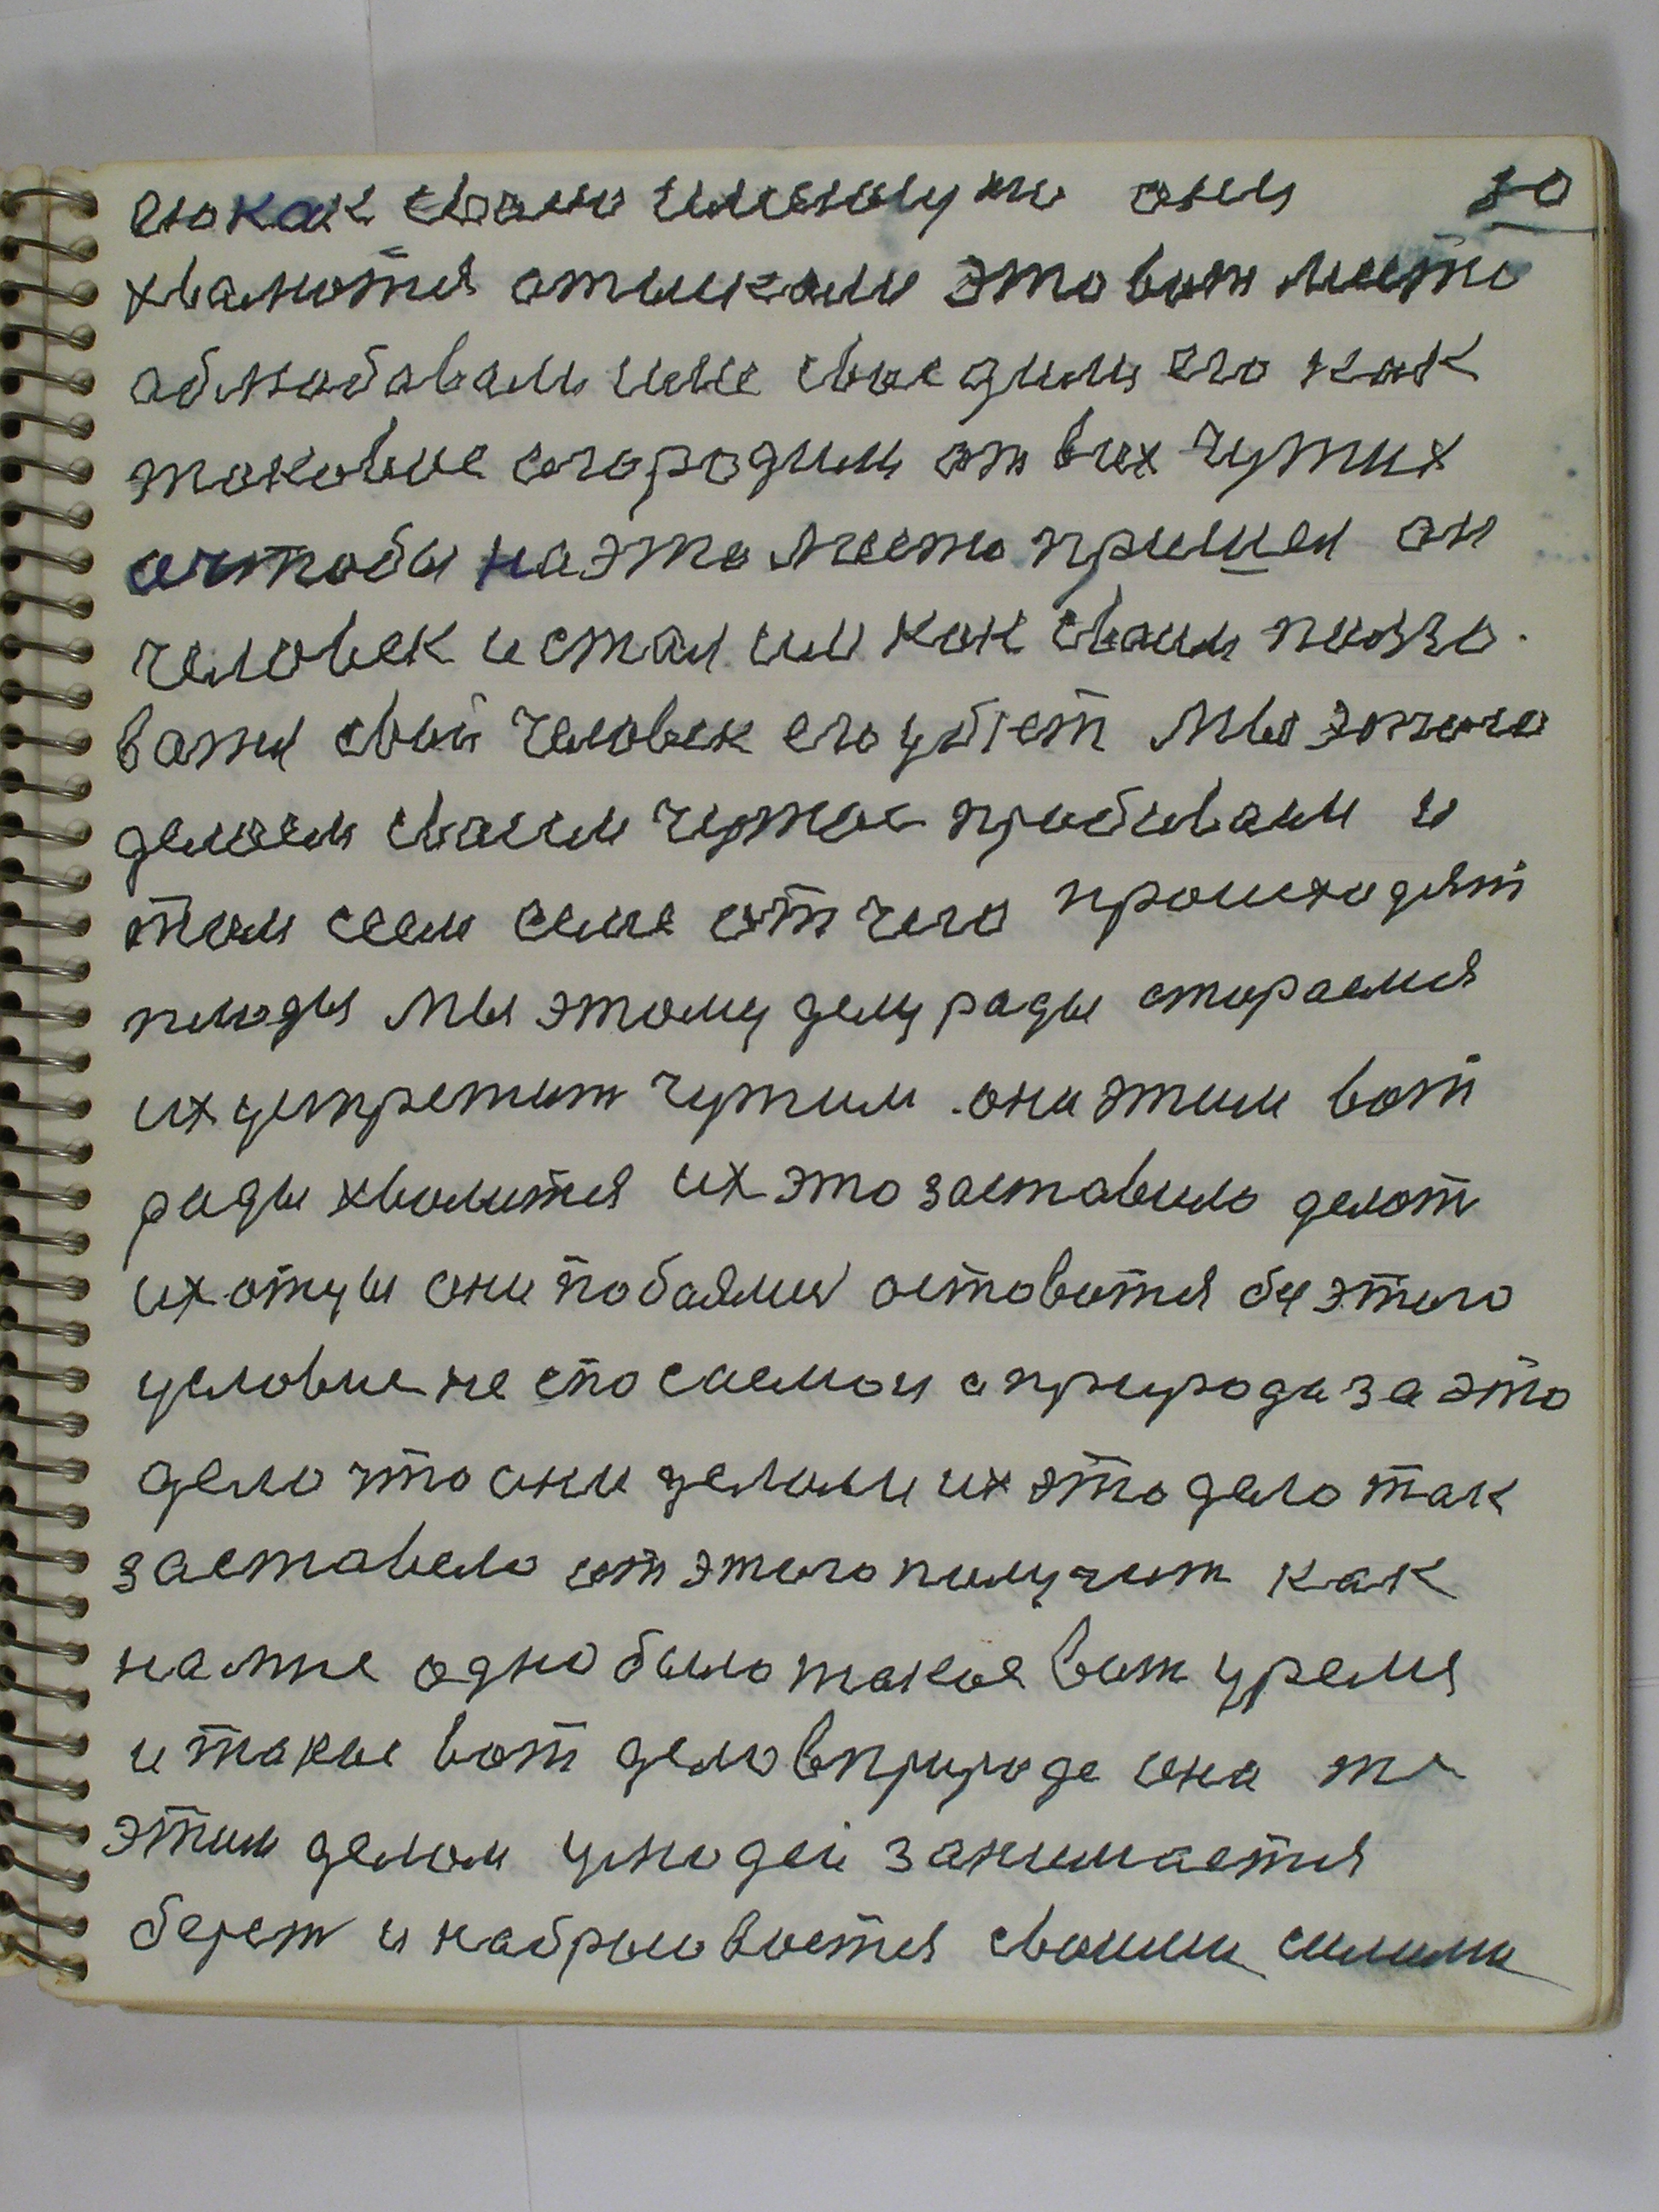 ею как своию они 80
хвалются отискали это вот место
аблюбавали имие сваедили его как
таковыe огородили от всех чутих
ачтобы наэто место пришел он
человек и стал им как своим ползо-
ватся свой человек его убiет Мы этого
делаем своим чужое прабиваем и
там сеем семе от чего происходят
плоды Мы этому делу рады стораемся
их употреттит чутим они этим вот
рады хвалится их это заставило делат
их отцы они побаялися остоватся без этого
условие не спосаемои а природа за это
дело что они делали их это дело так
заставело от этого получит как
на мне одно было такое вот уремя
и такое вот дело вприроде она то
этим делом улюдей занимается
берет и набрасовается своими силами